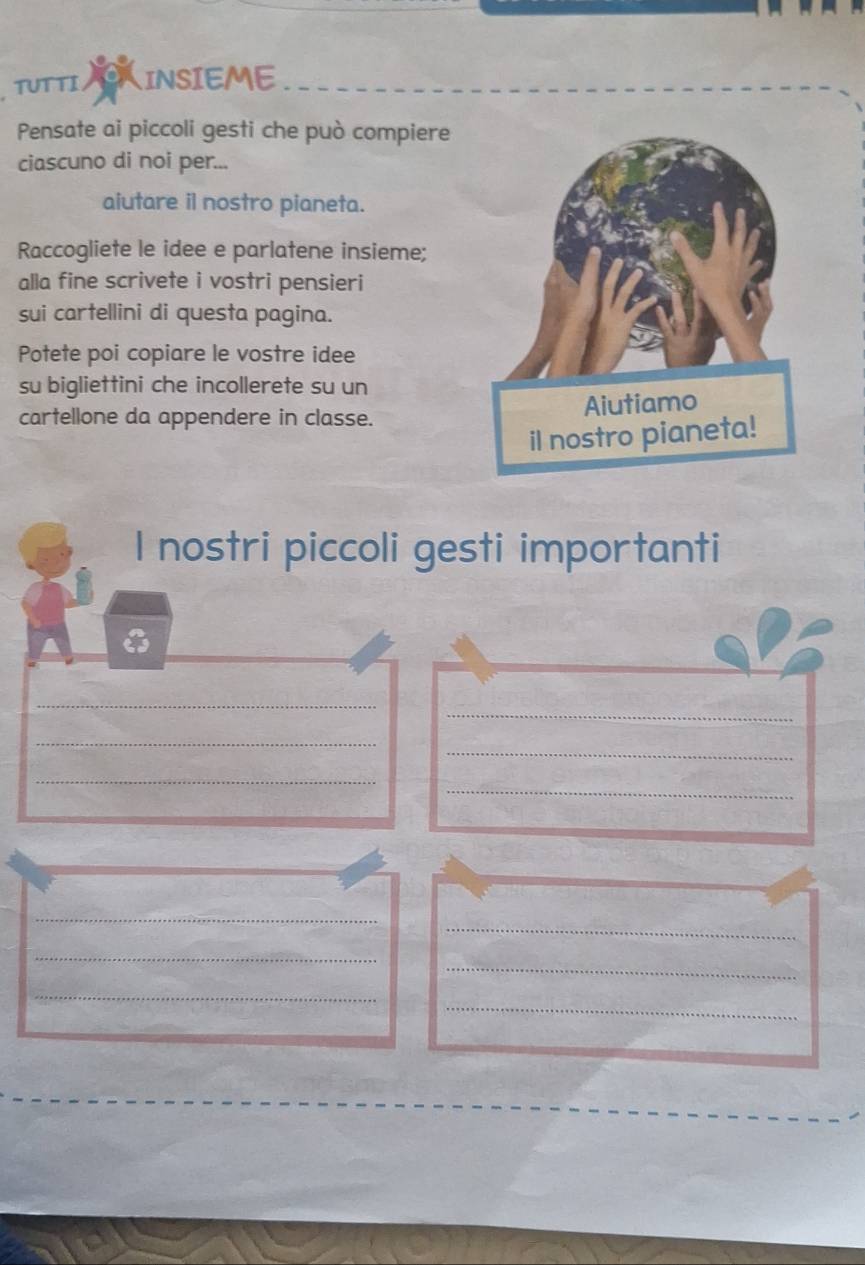 TUTTI INSIEME
Pensate ai piccoli gesti che può compiere
ciascuno di noi per...
aiutare il nostro pianeta.
Raccogliete le idee e parlatene insieme;
alla fine scrivete i vostri pensieri
sui cartellini di questa pagina.
Potete poi copiare le vostre idee
su bigliettini che incollerete su un
cartellone da appendere in classe.
Aiutiamo
il nostro pianeta!
I nostri piccoli gesti importanti